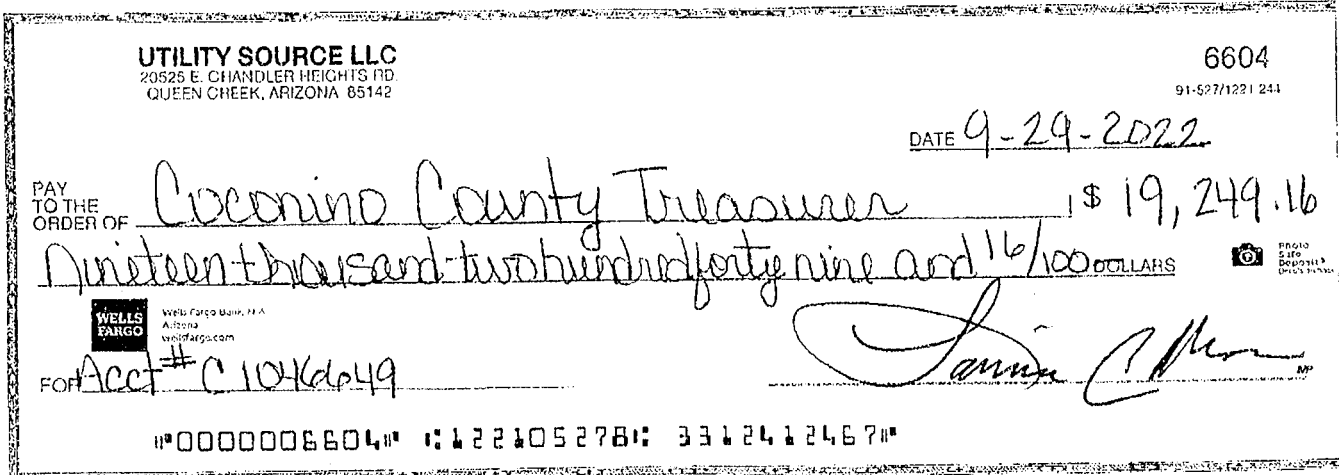 UTILITY SOURCE LLC
20525 E. CHANDLER HEIGHTS RD.
QUEEN CREEK, ARIZONA 85142
6604
91-527/1221 244
DATE 9-29-2022
PAY TO THE ORDER OF Coconino County Treasurer $ 19,249.16
Nineteen thousand two hundred forty nine and 16/100 DOLLARS
Photo Safe Deposit
WELLS FARGO
Wells Fargo Bank, N.A.
Arizona
wellsfargo.com
FOR Acct # C
MP
⑈0000006604⑈ ⑆122105278⑆ 3312412467⑈